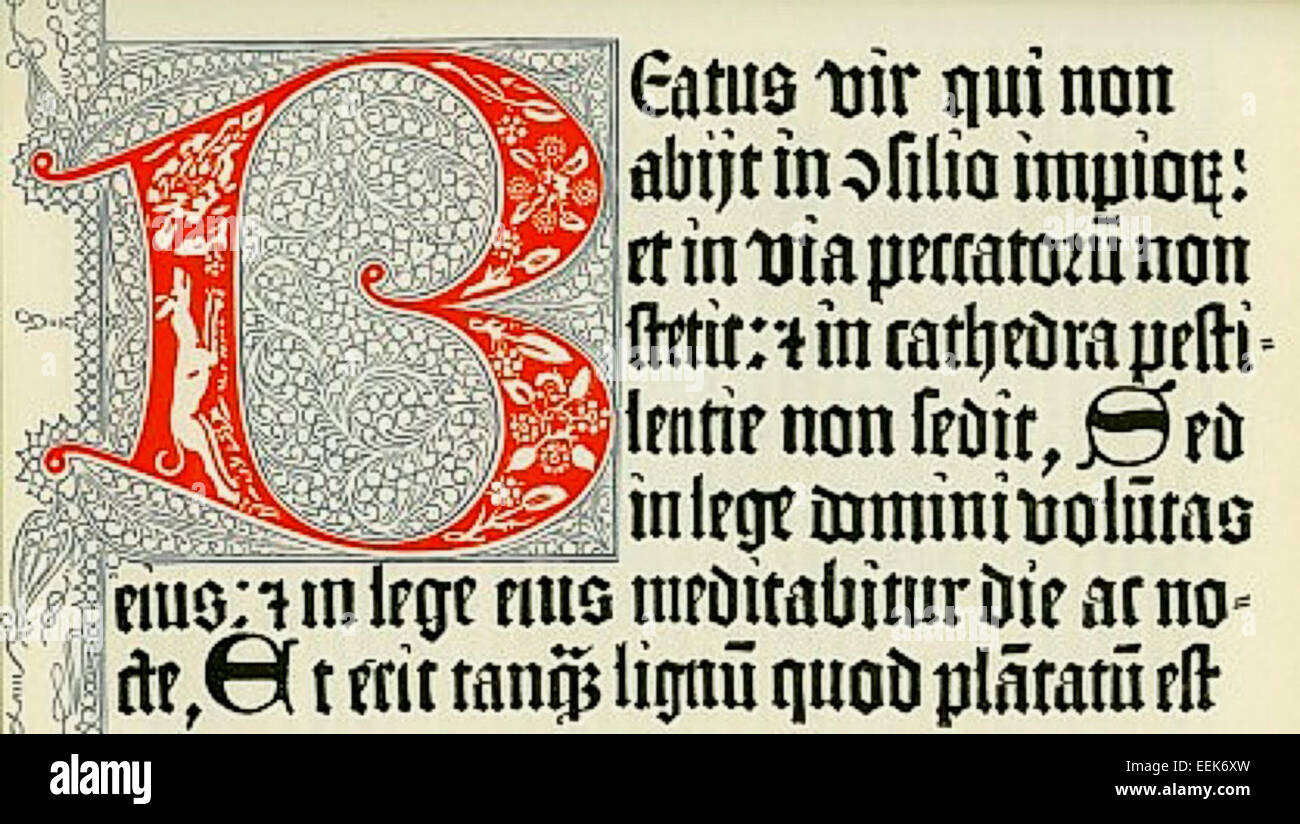 BEatus vir qui non
abijt in ꝯsilio impioꝝ:
et in via peccatorū non
stetit: ⁊ in cathedra pesti-
lentie non sedit, Sed
in lege domini volūtas
eius: ⁊ in lege eius meditabitur die ac no-
cte, Et erit tanq̃ʒ lignū quod plātatū est
alamy
Image ID: EEK6XW
www.alamy.com